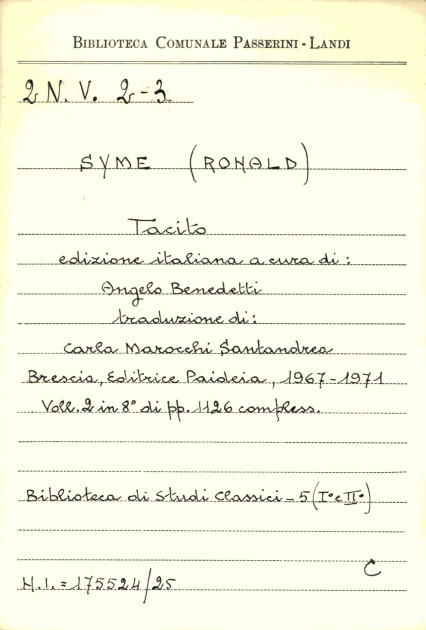 BIBLIOTECA COMUNALE PASSERINI - LANDI
2 N. V. 2-3
SYME (RONALD)
Tacito
edizione italiana a cura di:
Angelo Benedetti
traduzione di:
Carla Marocchi Santandrea
Brescia, Editrice Paideia, 1967-1971
Voll. 2 in 8° di pp. 1126 compless.
Biblioteca di Studi Classici - 5 (I° e II°)
C
N.I. = 175524/25